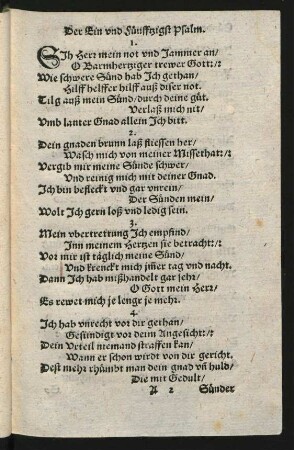 Der Ein vnd Fünfftzigst Psalm.
1.
SIh Herr mein not vnd Jammer an/
O Barmhertziger trewer Gott:/:
Wie schwere Sünd hab Ich gethan/
Hilff helffer hilff auß diser not.
Tilg auß mein Sünd/durch deine güt.
Verlaß mich nit/
Vmb lauter Gnad allein Ich bitt.
2.
Dein gnaden brunn laß fliessen her/
Wasch mich von meiner Missethat:/:
Vergib mir meine Sünde schwer/
Vnd reinig mich mit deiner Gnad.
Ich bin befleckt vnd gar vnrein/
Der Sünden mein/
Wolt Ich gern loß vnd ledig sein.
3.
Mein vbertrettung Ich empfind/
Inn meinem Hertzen sie betracht:/:
Vor mir ist täglich meine Sünd/
Vnd krenckt mich jm̃er tag vnd nacht.
Dann Ich hab mißhandelt gar sehr/
O Gott mein Herr/
Es rewet mich je lenge je mehr.
4.
Ich hab vnrecht vor dir gethan/
Gesündigt vor deim Angesicht:/:
Dein Vrteil niemand straffen kan/
Wann er schon wirdt von dir gericht.
Dest mehr rhümbt man dein gnad vñ huld/
Die mit Gedult/
A 2 Sünder